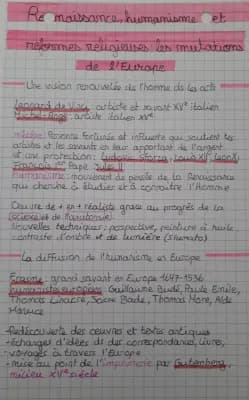 Renaissance, humanisme et
réformes religieuses, les mutations
de l'Europe
Une vision renouvelée de l'homme de les arts
Léonard de Vinci artiste et savant XVe italien
Michel-Ange: artiste italien XVe
mécène: Personne fortunée et influente qui soutient les
artistes et les savants en leur apportant de l'argent
et une protection: Ludovic Sforza, Louis XII, Léon X,
François 1er, Pape Jules II
humanisme: mouvement de pensée de la Renaissance
qui cherche à étudier et à connaître l'Homme
Œuvre de + en + réaliste grâce au progrès de la
science et de l'anatomie.
Nouvelles techniques: perspective, peinture à huile
contraste d'ombre et de lumière (sfumato)
La diffusion de l'humanisme en Europe
Erasme: grand savant en Europe 1647-1536
humanistes européens: Guillaume Budé, Paule Emile,
Thomas Linacre, Josse Bade, Thomas More, Alde
Manuce
-Redécouverte des œuvres et textes antiques
-échanges d'idées ds des correspondances, livres,
voyages à travers l'Europe
-mise au point de l'imprimerie par Gutenberg,
milieu XVe siècle